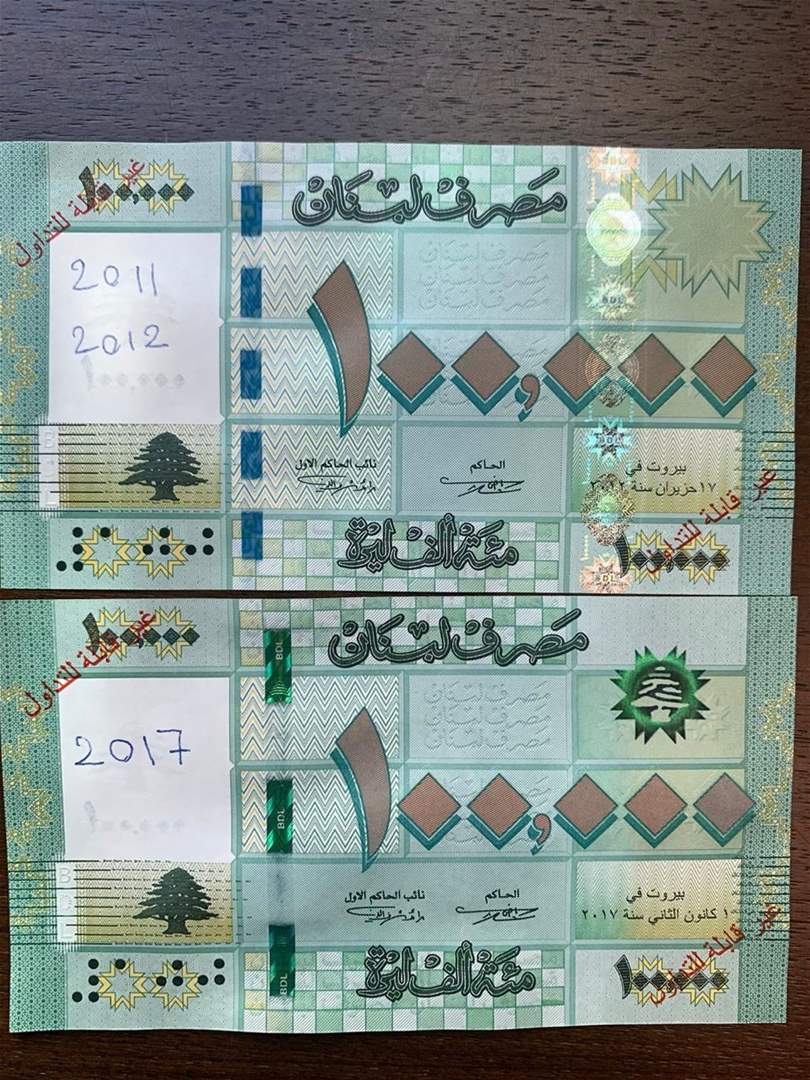 ١٠٠,٠٠٠
غير قابلة للتداول
مصرف لبنان
BDL
2011
2012
١٠٠,٠٠٠
مصرف لبنان
مصرف لبنان
مصرف لبنان
١٠٠,٠٠٠
BDL
BDL
نائب الحاكم الاول
الحاكم
بيروت في
١٧ حزيران سنة ٢٠١٢
غير قابلة للتداول
مئة ألف ليرة
١٠٠,٠٠٠
BDL
١٠٠,٠٠٠
غير قابلة للتداول
مصرف لبنان
BDL
2017
١٠٠,٠٠٠
مصرف لبنان
مصرف لبنان
مصرف لبنان
١٠٠,٠٠٠
BDL
نائب الحاكم الاول
الحاكم
بيروت في
١ كانون الثاني سنة ٢٠١٧
غير قابلة للتداول
مئة ألف ليرة
١٠٠,٠٠٠
BDL